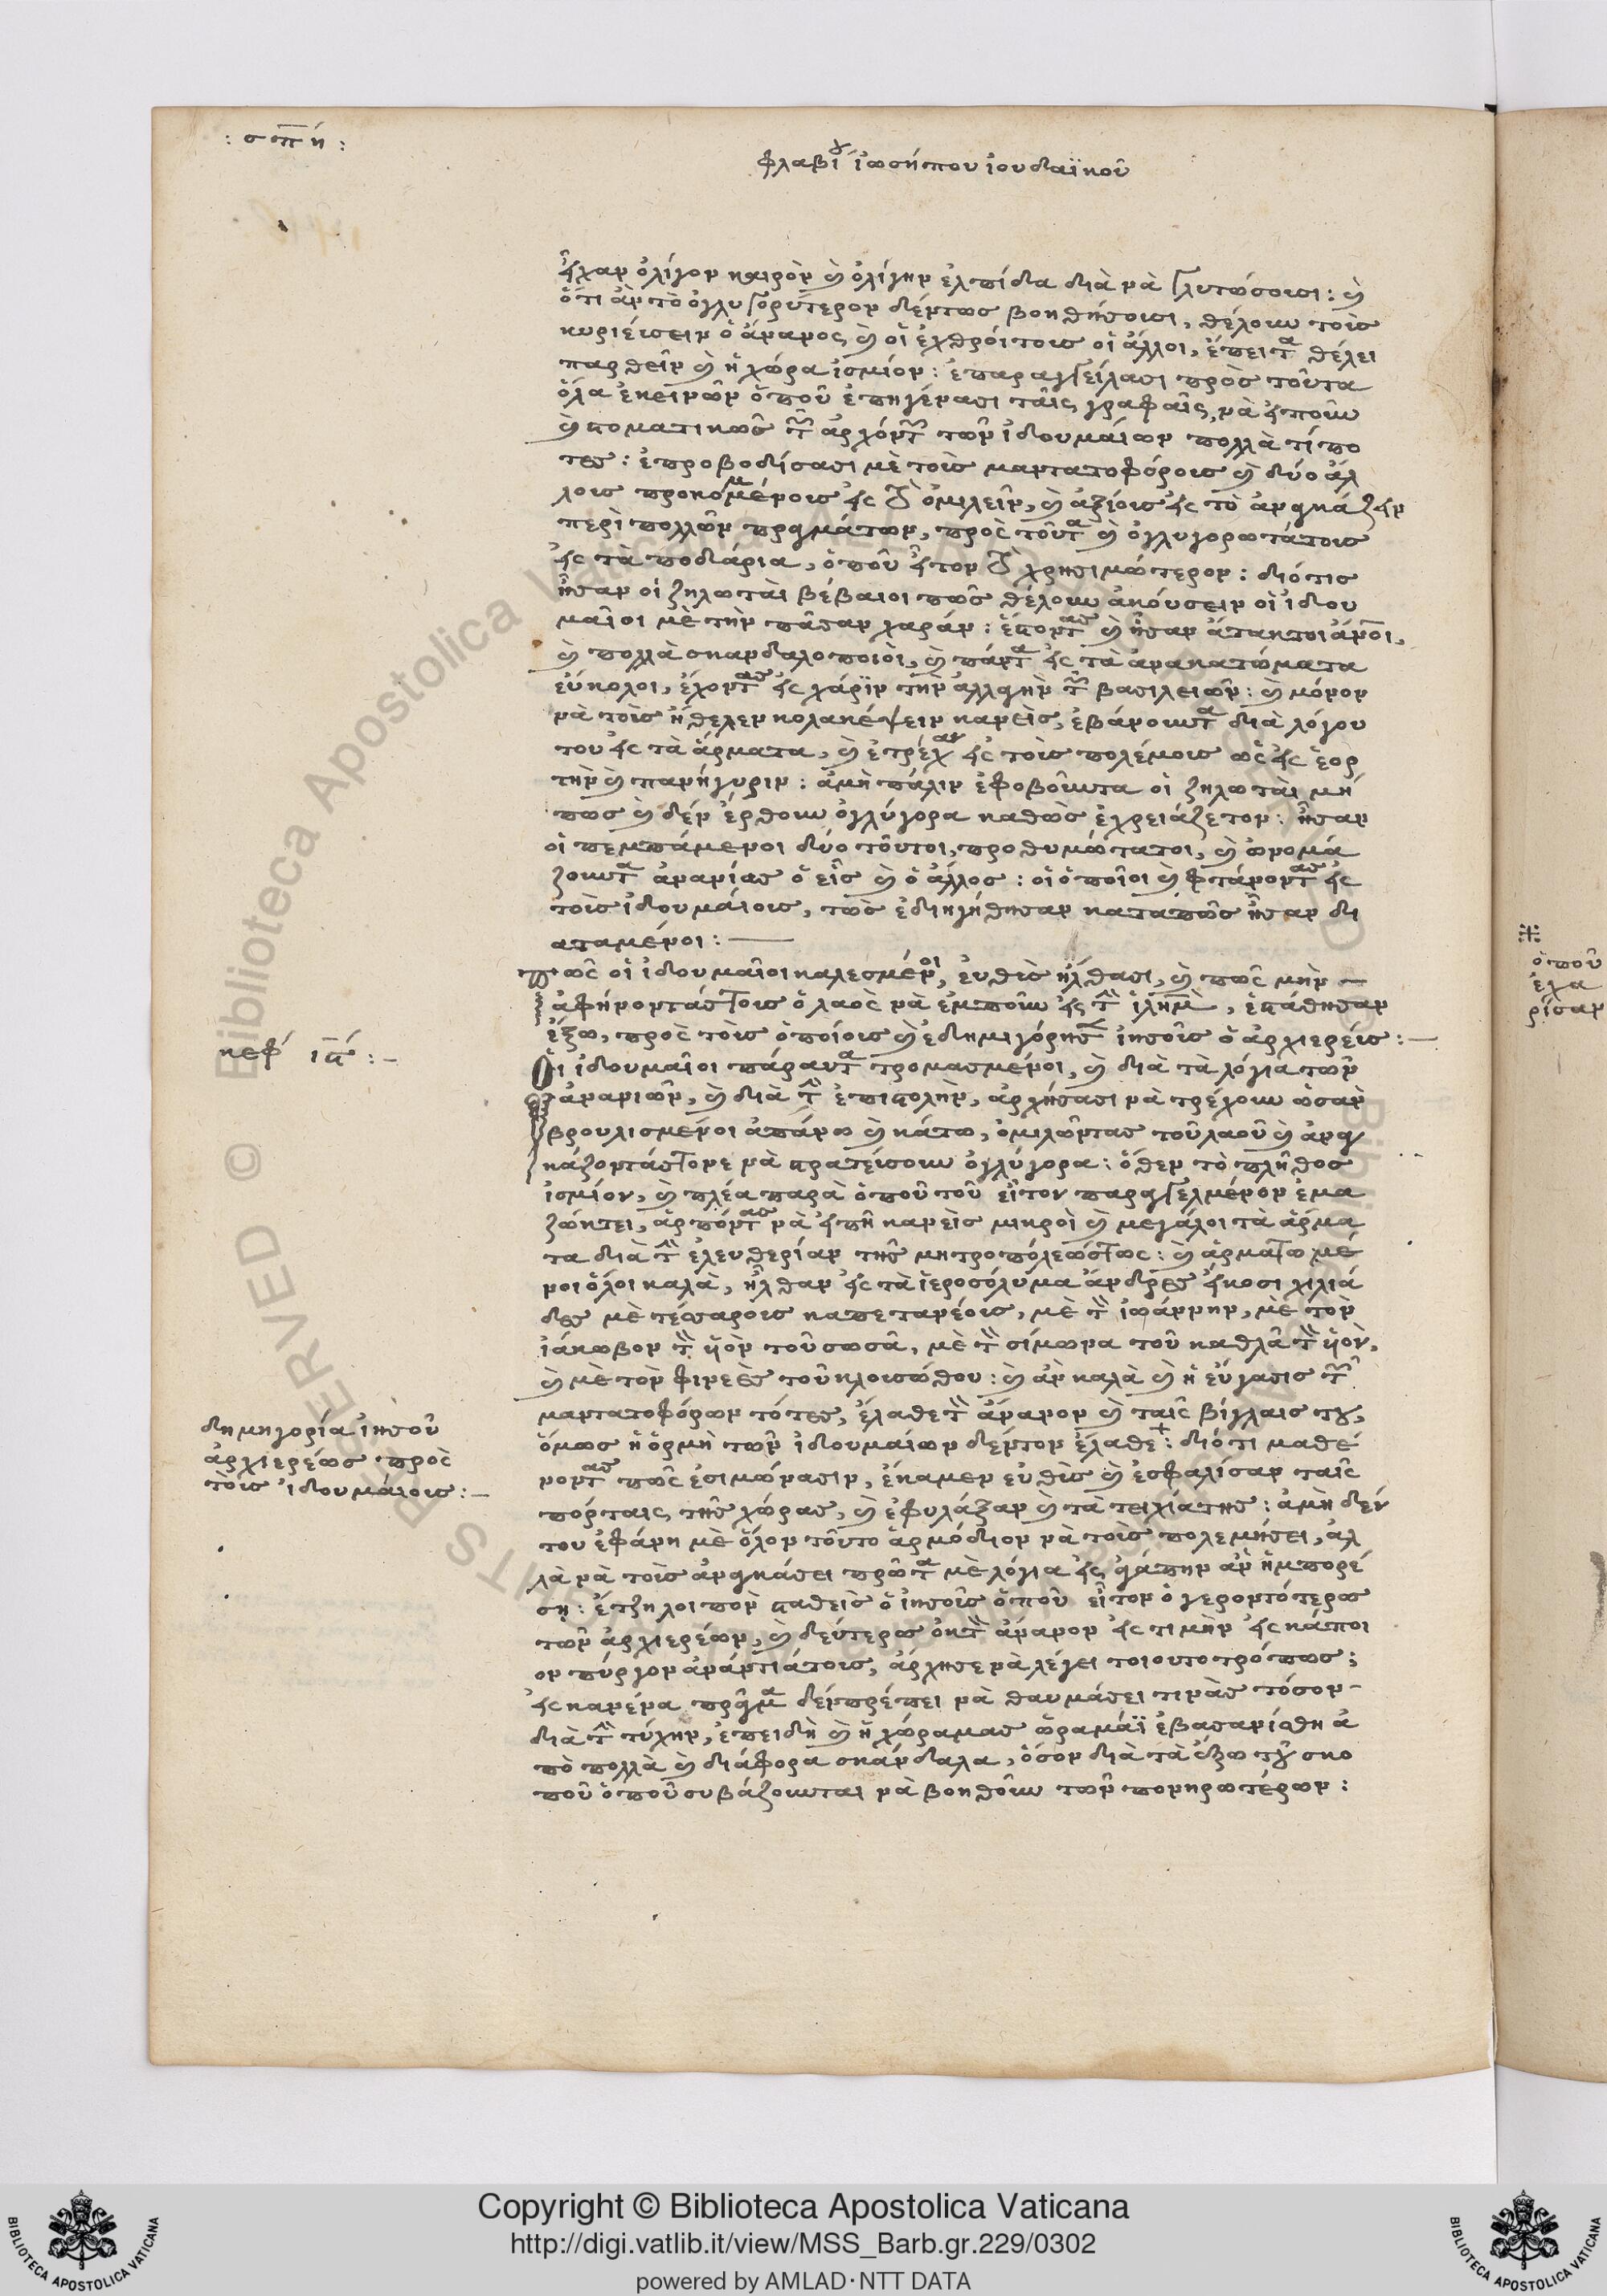 : σπη :
φλαβίου ἰωσήπου ἰουδαϊκοῦ
εἶχαν ὀλίγον καιρὸν καὶ ὀλίγην ἐλπίδα διὰ νὰ γλυτώσουσι: καὶ
ὅτι ἂν τὸ ὀγλυγορύτερον δέντους βοηθήσουσι, θέλουν τοὺς
κυριεύσειν ὁ ἄνανος καὶ οἱ ἐχθρόιτους οἱ ἄλλοι, ἔπειτα θέλει
παρθεῖν καὶ ἡ χώρα ἰσμίον: ἐπαραγγείλασι πρὸς τοῦτα
ὅλα ἐκεινῶν ὁποῦ ἐπηγένασι ταῖς γραφαῖς, νὰ εἰποῦν
καὶ στοματικῶς τῶν ἀρχόντων τῶν ἰδουμαίων πολλὰ τίπο
τες: ἐπροβοδίσασι μὲ τοὺς μαντατοφόρους καὶ δύο ἄλ
λους προκομμένους εἰς τὸ ὁμιλεῖν, καὶ ἀξίους εἰς τὸ ἀναγκάζειν
περὶ πολλῶν πραγμάτων, πρὸς τοῦτα καὶ ὀγλυγορωτάτους
εἰς τὰ ποδάρια, ὁποῦ εἶτον τὸ χρησιμώτερον: διότις
ἦσαν οἱ ζηλωταὶ βέβαιοι πῶς θέλουν ἀκούσειν οἱ ἰδου
μαῖοι μὲ τὴν πᾶσαν χαράν: ἔστοντας καὶ ἦσαν ἄτακτοι ἄνοι,
καὶ πολλὰ σκανδαλοποιοὶ, καὶ πάντα εἰς τὰ ἀνακατώματα
εὔκολοι, ἔχοντας εἰς χάριν τὴν ἀλλαγὴν τῶν βασιλειῶν: καὶ μόνον
νὰ τοὺς ἤθελεν κολακέψειν κανεὶς, ἐβάνουντα διὰ λόγου
του εἰς τὰ ἄρματα, καὶ ἐτρέχαν εἰς τοὺς πολέμους ὡς εἰς ἑορ
τὴν καὶ πανήγυριν: ἀμὴ πάλιν ἐφοβοῦντα οἱ ζηλωταὶ μή
πως καὶ δέν ἔρθουν ὀγλύγορα καθὼς ἐχρειάζετον: ἦσαν
οἱ πεμπάμενοι δύο τοῦτοι, προθυμώτατοι, καὶ ὠνομά
ζουντα ἀνανίας ὁ εἷς καὶ ὁ ἄλλος: οἱ ὁποῖοι καὶ φτάνοντας εἰς
τοὺς ἰδουμαίους, τῶς ἐδιηγήθησαν καταπῶς ἦσαν δι
αταμένοι: —
πῶς οἱ ἰδουμαῖοι καλεσμένοι, εὐθὺς ἤλθασι, καὶ πῶς μὴν —
ἀφήνοντάςτους ὁ λαὸς νὰ ἐμποῦν εἰς τὴν ἱλημ, ἐστάθησαν
ἔξω, πρὸς τοὺς ὁποίους καὶ ἐδημιγόρησεν ἰησοῦς ὁ ἀρχιερεὺς: —
κεφ ιϛ : —
Οἱ ἰδουμαῖοι πάραυτα τρομασμένοι, καὶ διὰ τὰ λόγια τῶν
ἀνανιῶν, καὶ διὰ τὴν ἐπιστολὴν, ἀρχήσασι νὰ τρέχουν ὡσὰν
βρουλισμένοι ἀπάνω καὶ κάτω, ὁμιλῶντας τοῦ λαοῦ καὶ ἀναγ
κάζοντάςτονε νὰ στρατεύσουν ὀγλύγορα: ὅθεν τὸ πλῆθος
ἰσμίον, καὶ πλέα παρὰ ὁποῦ τοῦ εἶτον παραγγελμένον ἐμα
ζώκτει, ἀρπόντας νὰ εἰπῆ κανεὶς μικροὶ καὶ μεγάλοι τὰ ἄρμα
τα διὰ τὴν ἐλευθερίαν τῆς μητροπόλεώςτως: καὶ ἀρματωμέ
νοι ὅλοι καλὰ, ἦλθαν εἰς τὰ ἱεροσόλυμα ἄνδρες εἴκοσι χιλιά
δες μὲ τέσσαρους καπετανέους, μὲ τὸν ἰωάννην, μὲ τὸν
ἰάκωβον τὸν ὑὸν τοῦ σωσᾶ, μὲ τὸν σίμωνα τοῦ καθλᾶ τὸν ὑὸν,
καὶ μὲ τὸν φινεὲς τοῦ κλουσώθου: καὶ ἂν καλὰ καὶ ἡ εὔγασις τῶν
μαντατοφόρων τότες, ἔλαθε τὸν ἄνανον καὶ ταῖς βίγλαις του,
ὅμως ἡ ὁρμὴ τῶν ἰδουμαίων δέντον ἔλαθε: διότι μαθέ
νοντας πῶς ἐσιμώνασιν, ἔκαμεν εὐθὺς καὶ ἐσφαλίσαν ταῖς
πόρταις τῆς χώρας, καὶ ἐφυλάξαν καὶ τὰ τειχία της: ἀμὴ δέν
του ἐφάνη μὲ ὅλον τοῦτο ἁρμόδιον νὰ τοὺς πολεμήσει, ἀλ
λὰ νὰ τοὺς ἀναγκάσει πρῶτα μὲ λόγια εἰς ἀγάπην ἂν ἠμπορέ
σῃ: ἔτζη λοιπὸν σταθεὶς ὁ ἰησοῦς ὁποῦ εἶτον ὁ γεροντότερος
τῶν ἀρχιερέων, καὶ δεύτερος ἐκ τὸν ἄνανον εἰς τιμὴν εἰς κάποι
ον πύργον ἀνάντιάτους, ἀρχησε νὰ λέγει τοιουτοτρόπως:
εἰς κανένα πρᾶγμα δένπρέπει νὰ θαυμάσει τινὰς τόσον —
διὰ τὴν τύχην, ἐπειδὴ καὶ ἡ χώραμας ὥραμάϊ ἐβασανίσθη ἀ
πὸ πολλὰ καὶ διάφορα σκάνδαλα, ὅσον διὰ τὰ ἔξω τοῦ σκο
ποῦ ὁποῦ συβάζουνται νὰ βοηθοῦν τῶν πονηρωτέρων:
δημηγορία ἰησοῦ
ἀρχιερέως πρὸς
τοὺς ἰδουμάιους: —
ὁποῦ
ἐχα
ρίσαν
Copyright © Biblioteca Apostolica Vaticana
http://digi.vatlib.it/view/MSS_Barb.gr.229/0302
powered by AMLAD·NTT DATA
BIBLIOTECA APOSTOLICA VATICANA
BIBLIOTECA APOSTOLICA VATICANA